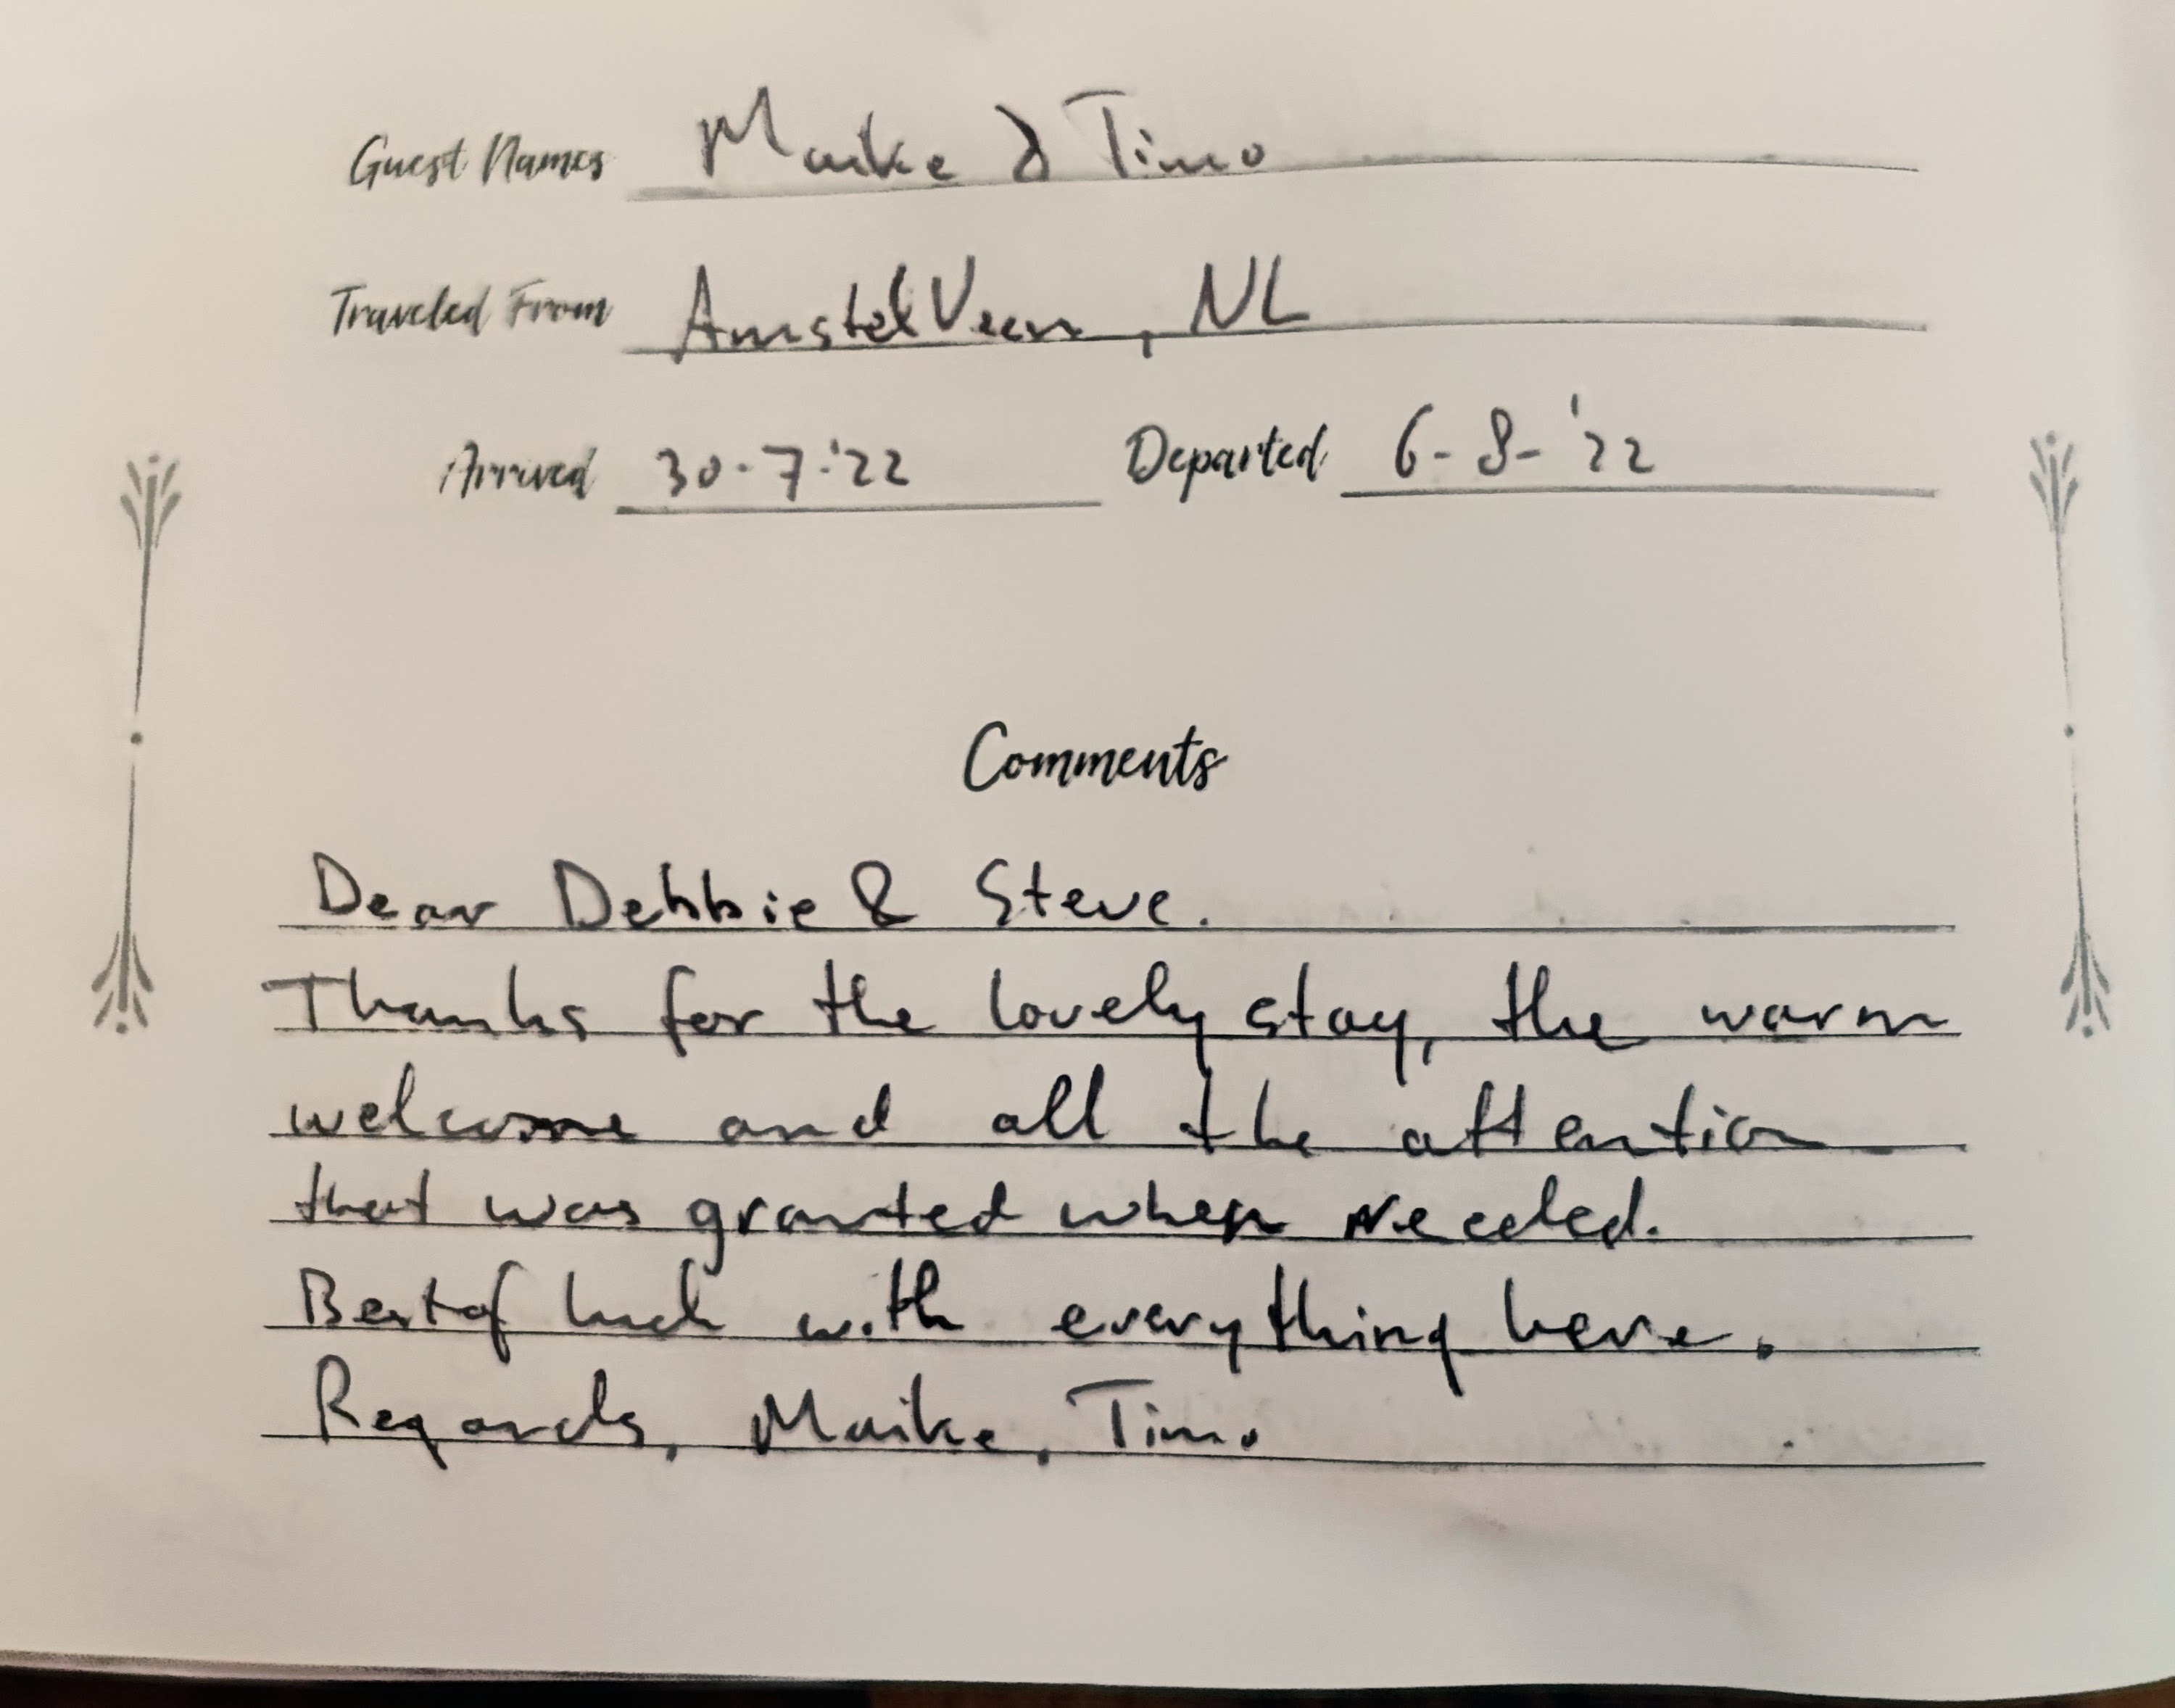 Guest Names Maike & Timo
Traveled From AmstelVeen, NL
Arrived 30-7-'22 Departed 6-8-'22
Comments
Dear Debbie & Steve.
Thanks for the lovely stay, the warm
welcome and all the attention
that was granted when Needed.
Best of luck with everything here.
Regards, Maike, Timo